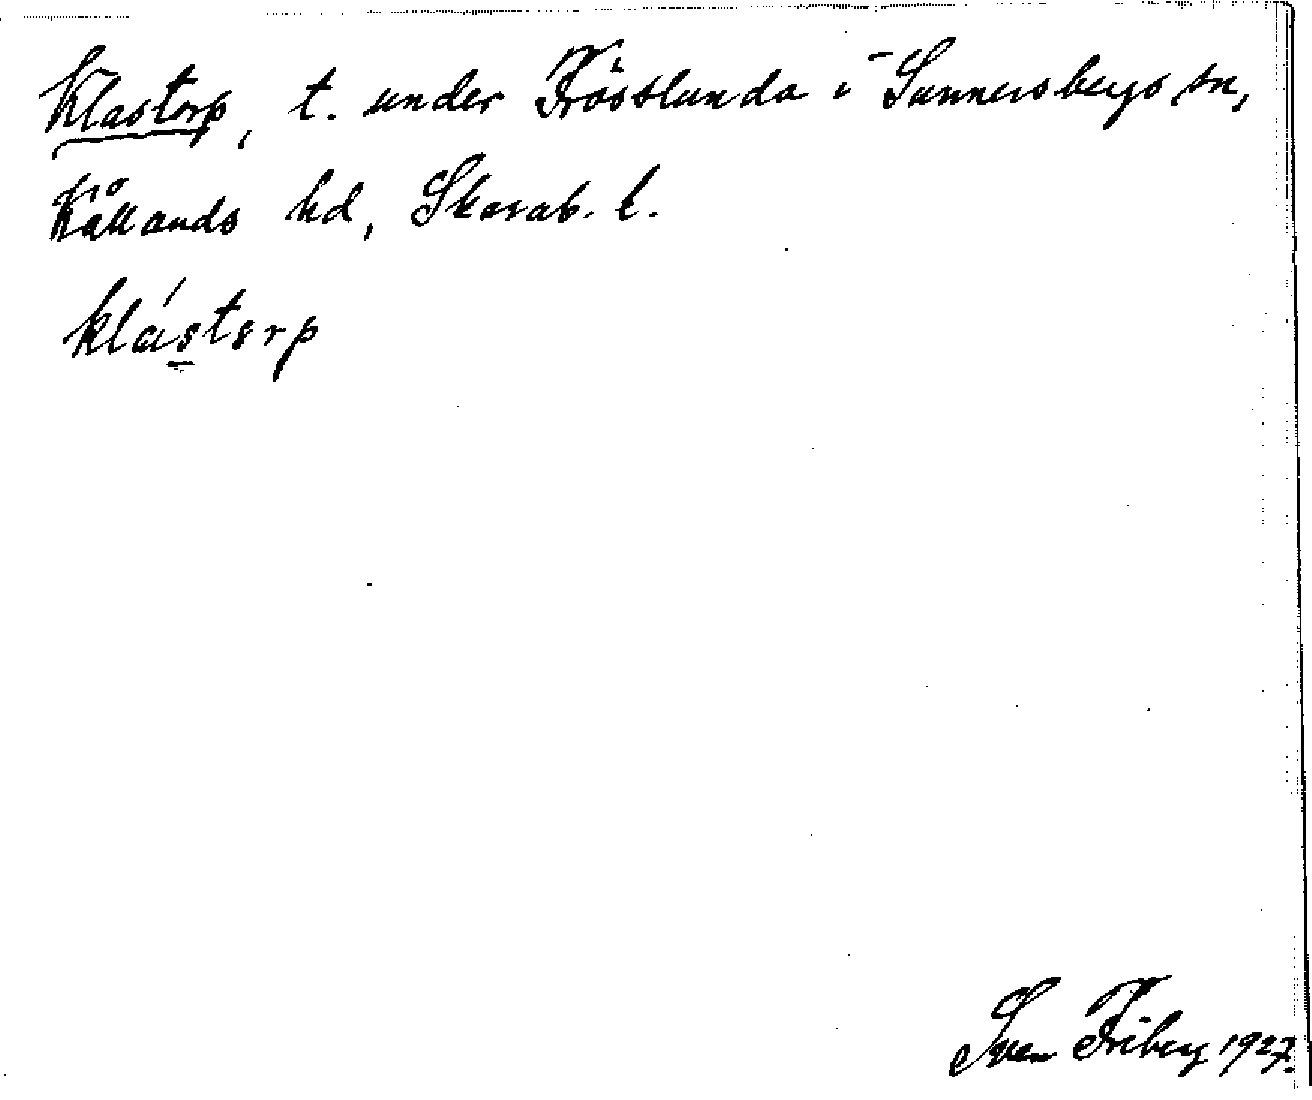 Klastorp, t. under Frösslunda i Sunnersbergs sn,
Kållands hd, Skarab. l.
klástorp
Sven Friberg 1927.